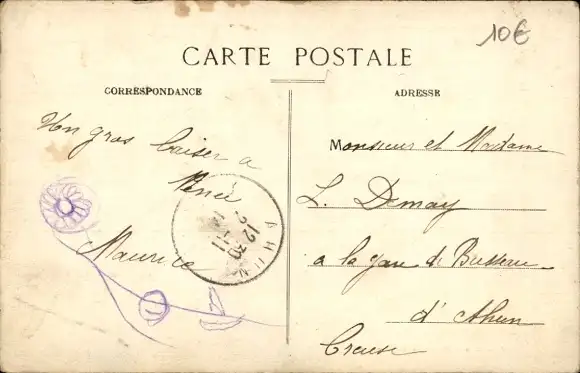 10€
CARTE POSTALE
CORRESPONDANCE
ADRESSE
Un gros baiser a
René
Maurice
AHUN
12 30
Monsieur et Madame
L. Demay
a la gare de Busseau
d'Ahun
Creuse